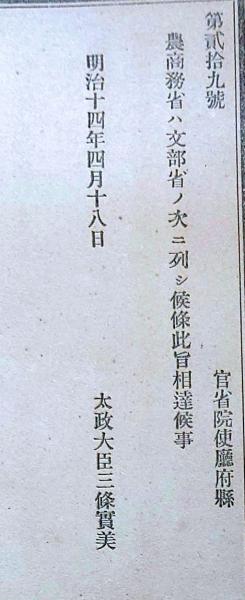 第貳拾九號
官省院使廳府縣
農商務省ハ文部省ノ次ニ列シ候條此旨相達候事
明治十四年四月十八日
太政大臣三條實美